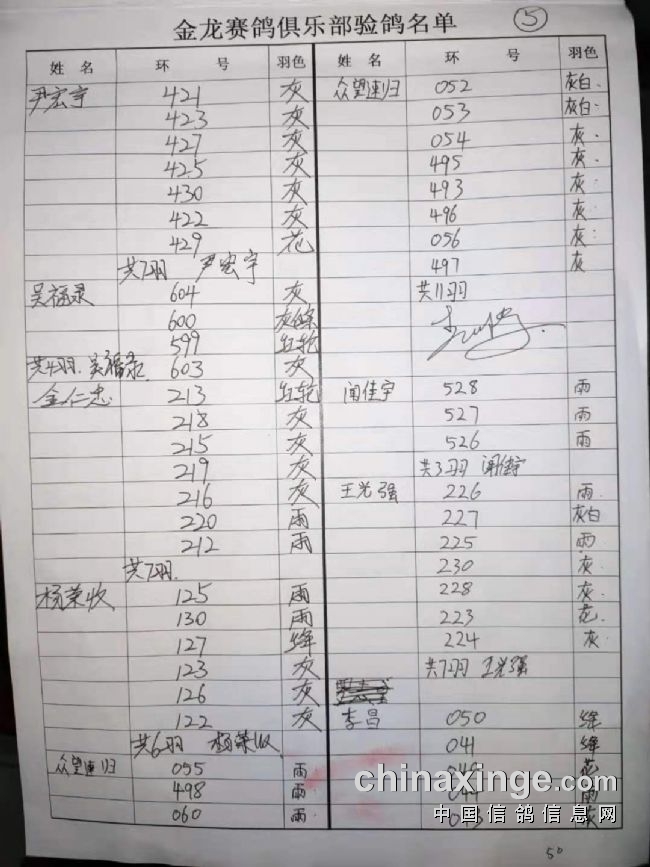 金龙赛鸽俱乐部验鸽名单 ⑤
姓 名 环 号 羽色
尹宏宇 421 灰
423 灰
427 灰
425 灰
430 灰
422 灰
429 花
共7羽 尹宏宇
吴福录 604 灰
600 灰白条
599 红轮
共4羽 吴福录 603 灰
金仁忠 213 红轮
218 灰
215 灰
219 灰
216 灰
220 雨
212 雨
共7羽.
杨荣收 125 雨
130 雨
127 绛
123 灰
126 灰
122 灰
共6羽 杨荣收
众望速归 055 雨
498 雨
060 雨
姓 名 环 号 羽色
众望速归 052 灰白.
053 灰白.
054 灰.
495 灰.
493 灰.
496 灰.
056 灰.
497 灰
共11羽
闻佳宇 528 雨
527 雨
526 雨
共3羽 闻佳宇
王光强 226 雨.
227 灰白
225 雨
230 灰.
228 灰.
223 花.
224 灰.
共7羽 王光强
李昌 050 绛
041 绛
花
雨
灰
chinaxinge.com
中国信鸽信息网
50